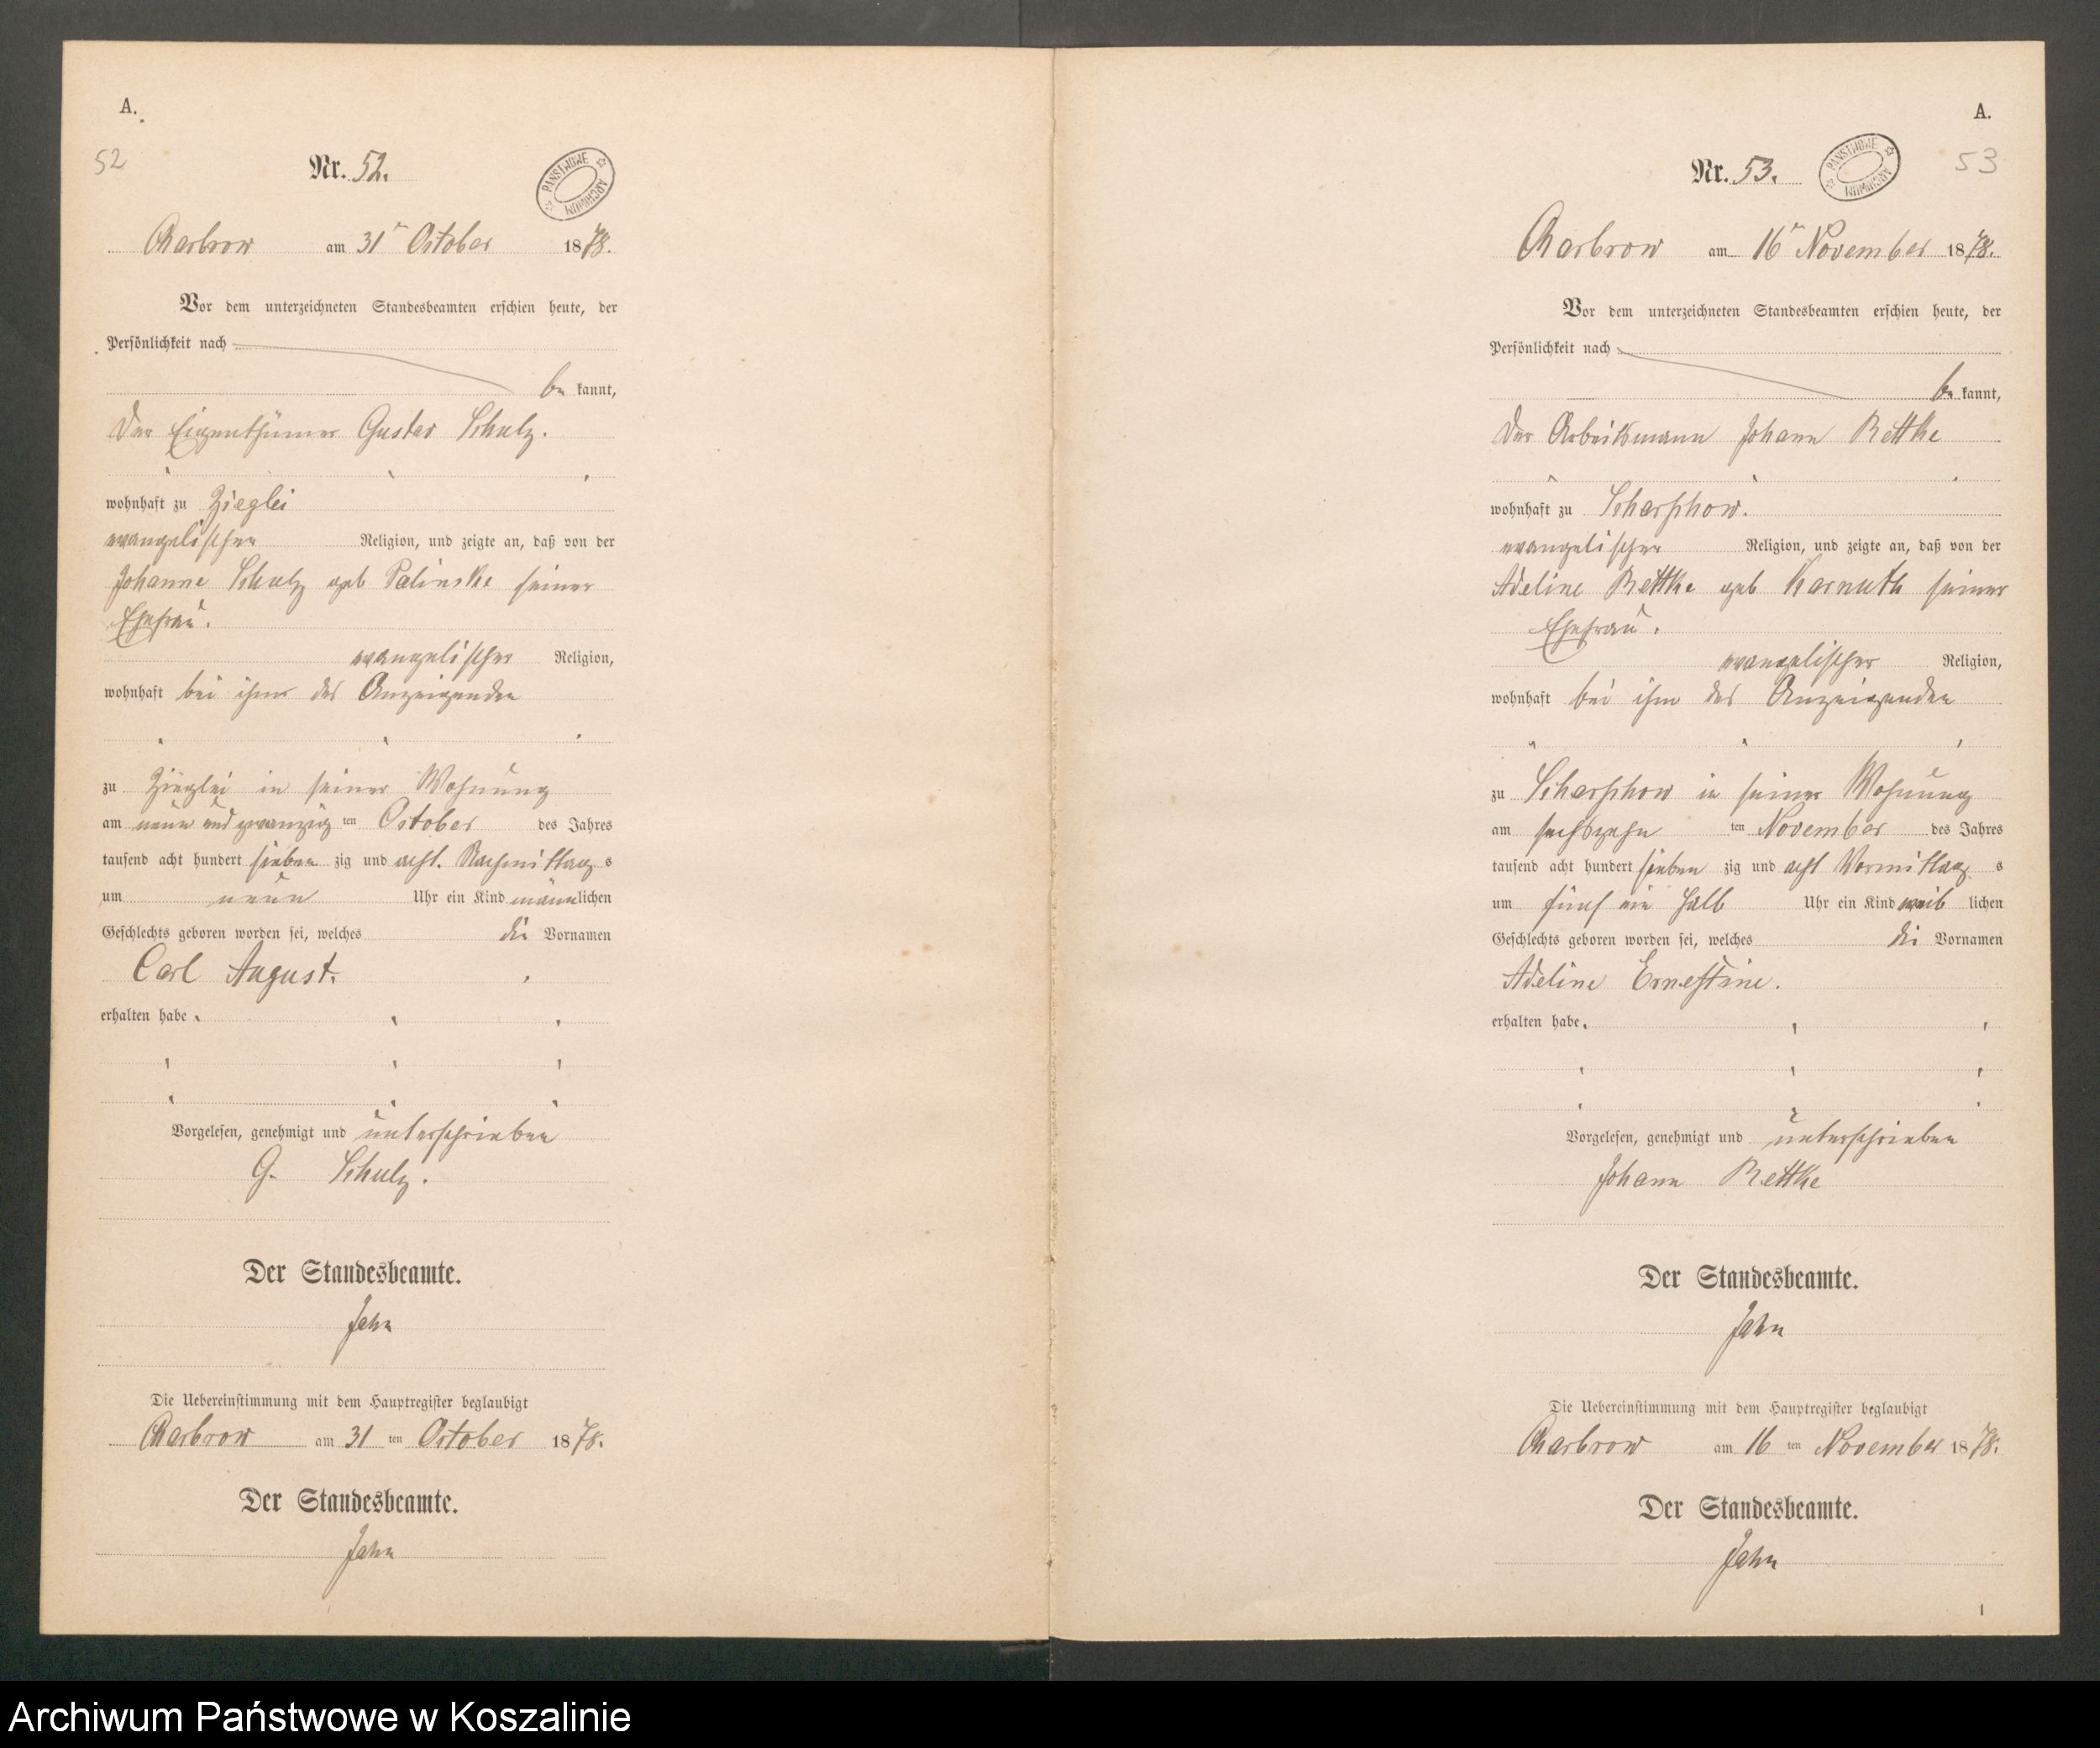 A.
52
Nr. 52.
PAŃSTWOWE ARCHIWUM
Charbrow am 31ten October 1878.
Vor dem unterzeichneten Standesbeamten erschien heute, der
Persönlichkeit nach
be kannt,
Der Eigenthümer Gustav Schulz.
wohnhaft zu Zieglei
evangelischer Religion, und zeigte an, daß von der
Johanne Schulz geb Palinske seiner
Ehefrau.
evangelischer Religion,
wohnhaft bei ihm des Anzeigenden
zu Zieglei in seiner Wohnung
am neun und zwanzig ten October des Jahres
tausend acht hundert sieben zig und acht. Nachmittag s
um neun Uhr ein Kind männlichen
Geschlechts geboren worden sei, welches die Vornamen
Carl August.
erhalten habe.
Vorgelesen, genehmigt und unterschrieben
G. Schulz.
Der Standesbeamte.
Jahn
Die Uebereinstimmung mit dem Hauptregister beglaubigt
Charbrow am 31 ten October 1878.
Der Standesbeamte.
Jahn
A.
53
Nr. 53.
PAŃSTWOWE ARCHIWUM
Charbrow am 16ten November 1878.
Vor dem unterzeichneten Standesbeamten erschien heute, der
Persönlichkeit nach
be kannt,
Der Arbeitsmann Johann Rettke
wohnhaft zu Scharschow.
evangelischer Religion, und zeigte an, daß von der
Adeline Rettke geb Karnuth seiner
Ehefrau.
evangelischer Religion,
wohnhaft bei ihm des Anzeigenden
zu Scharschow in seiner Wohnung
am sechszehn ten November des Jahres
tausend acht hundert sieben zig und acht Vormittag s
um fünf ein halb Uhr ein Kind weib lichen
Geschlechts geboren worden sei, welches die Vornamen
Adeline Ernestine.
erhalten habe.
Vorgelesen, genehmigt und unterschrieben
Johann Rettke
Der Standesbeamte.
Jahn
Die Uebereinstimmung mit dem Hauptregister beglaubigt
Charbrow am 16 ten November 1878.
Der Standesbeamte.
Jahn
1
Archiwum Państwowe w Koszalinie